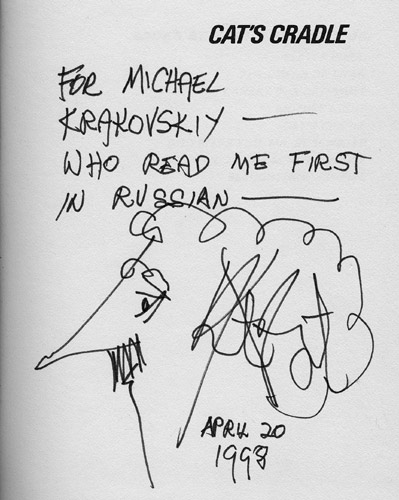 CAT'S CRADLE
FOR MICHAEL
KRAKOVSKIY —
WHO READ ME FIRST
IN RUSSIAN —
APRIL 20
1998